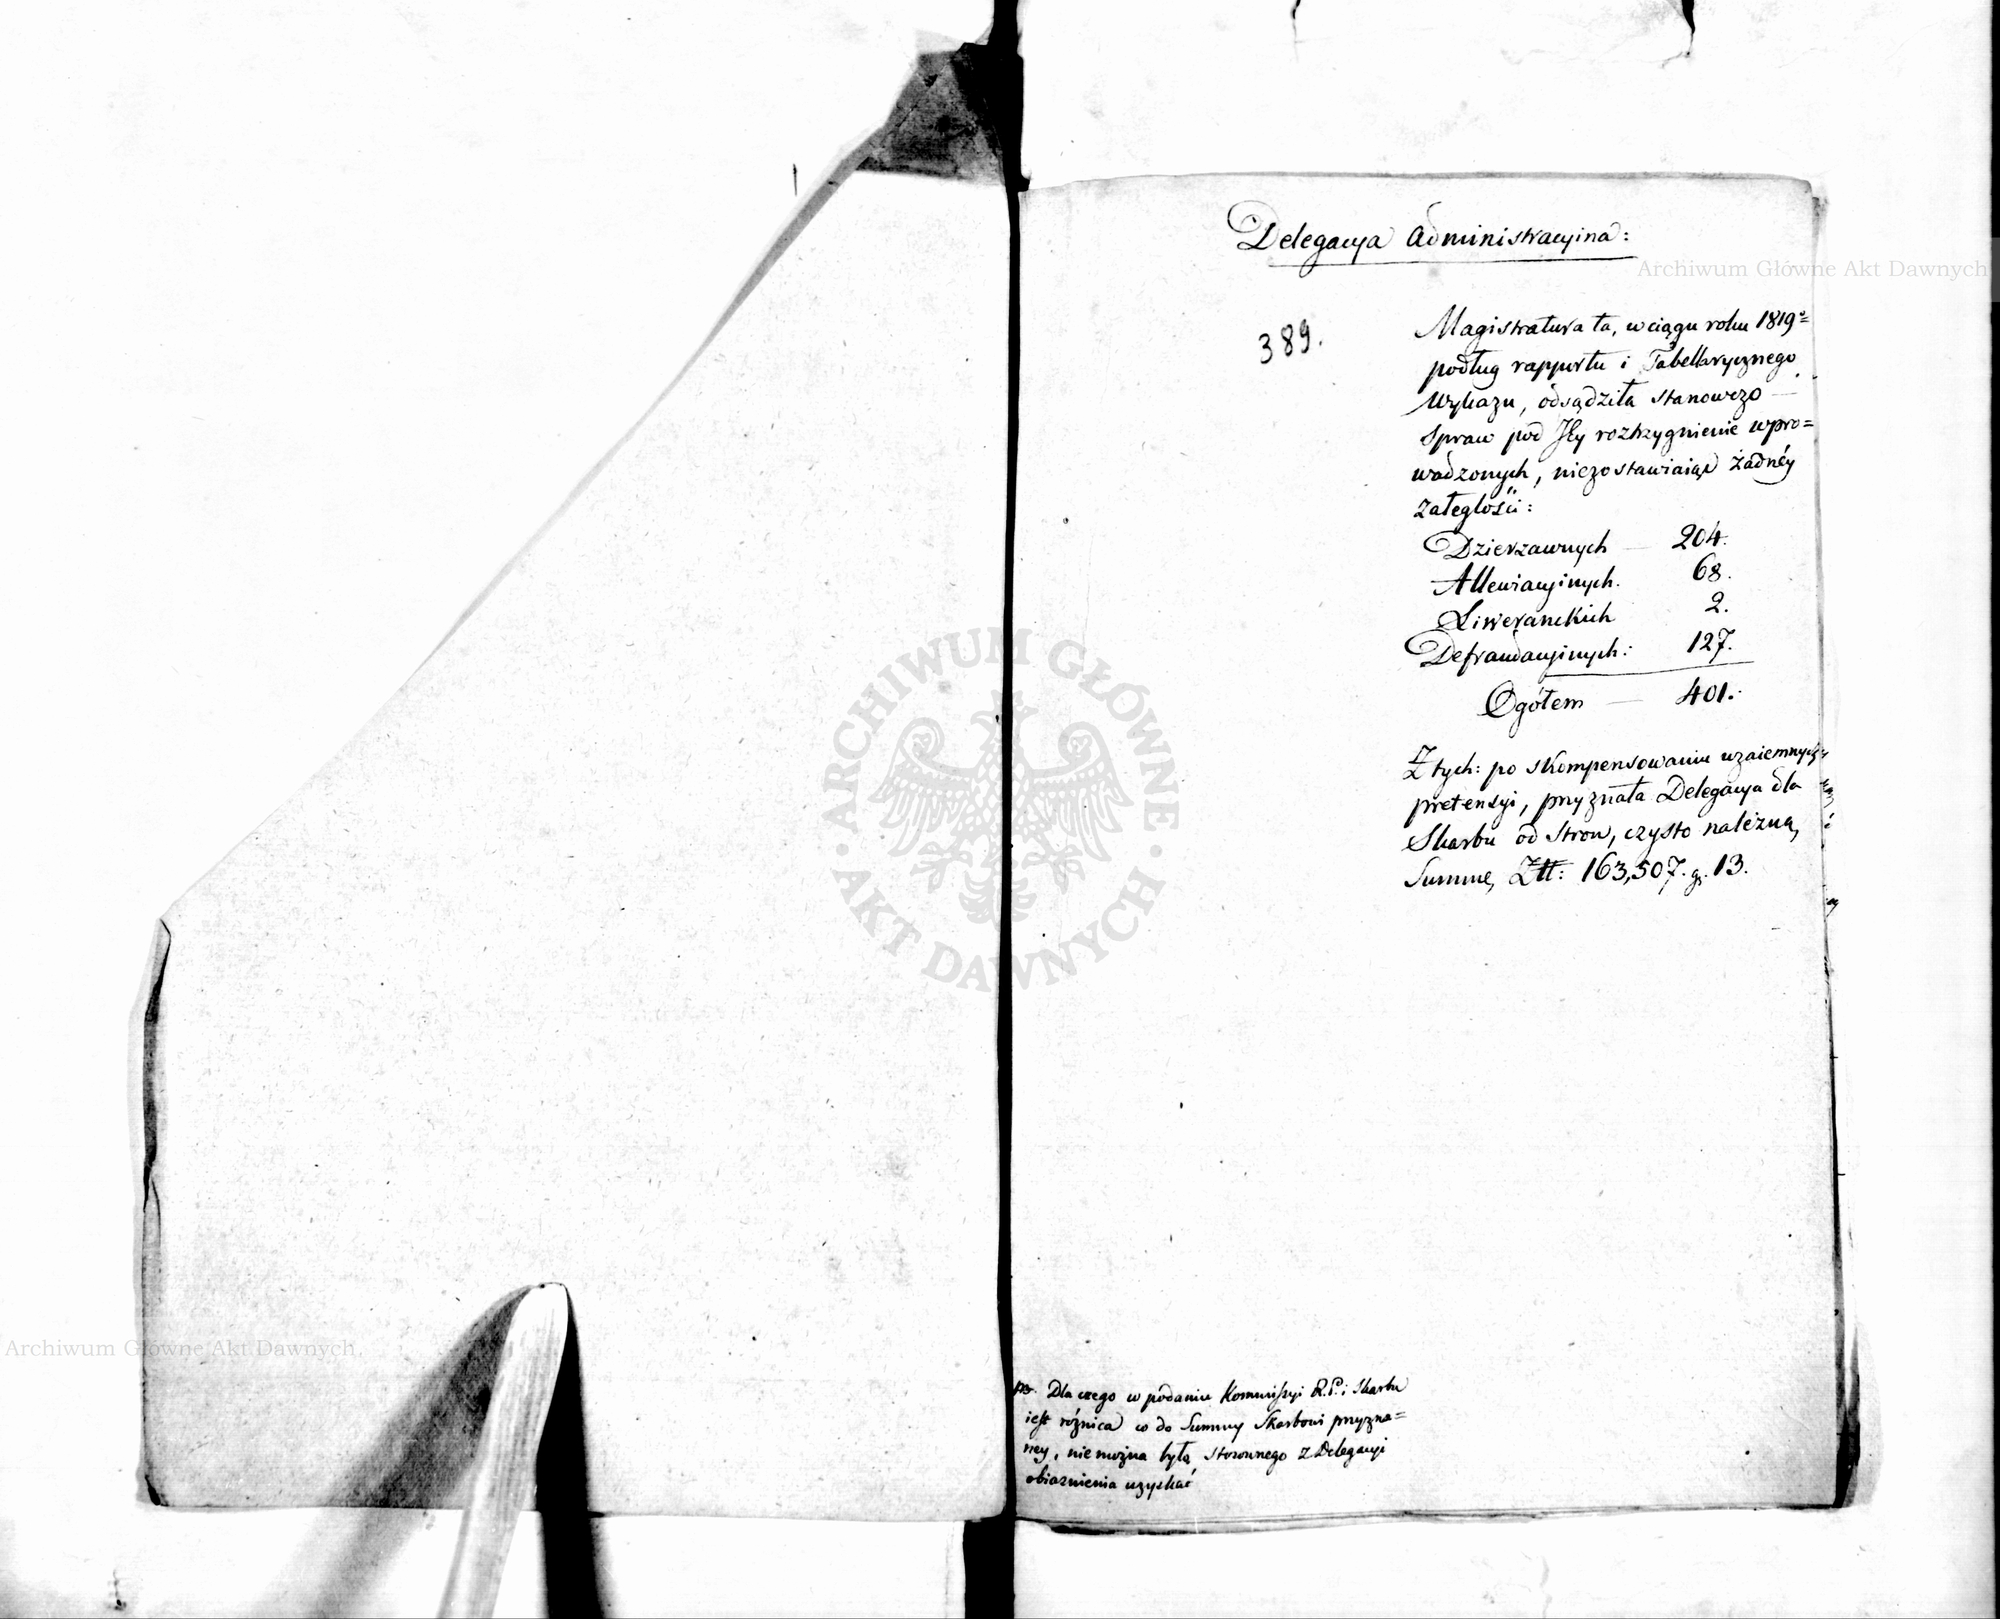 Delegacya Administracyina:
Archiwum Główne Akt Dawnych
389.
Magistratura ta, w ciągu roku 1819º=
podług rapportu i Tabellarycznego
Wykazu, odsądziła stanowczo —
Spraw pod Jey roztrzygnienie wpro=
wadzonych, niezostawiaiąc żadnéy
zaległości:
Dzierzawnych — 204.
Allewiacyinych. 68.
Liweranckich 2.
Defraudacyinych: 127.
Ogółem — 401.
Z tych: po skompensowaniu wzaiemnych
pretensyi, przyznała Delegacya dla
Skarbu od Stron, czysto należną,
Summę, Złł: 163,507. g. 13.
ARCHIWUM GŁÓWNE
· AKT DAWNYCH ·
Archiwum Główne Akt Dawnych
NB. Dla czego w podaniu Kommissyi R. P. i Skarbu
iest różnica co do Summy Skarbowi przyzna=
ney, nie można było stosownego z Delegacyi
obiaśnienia uzyskać